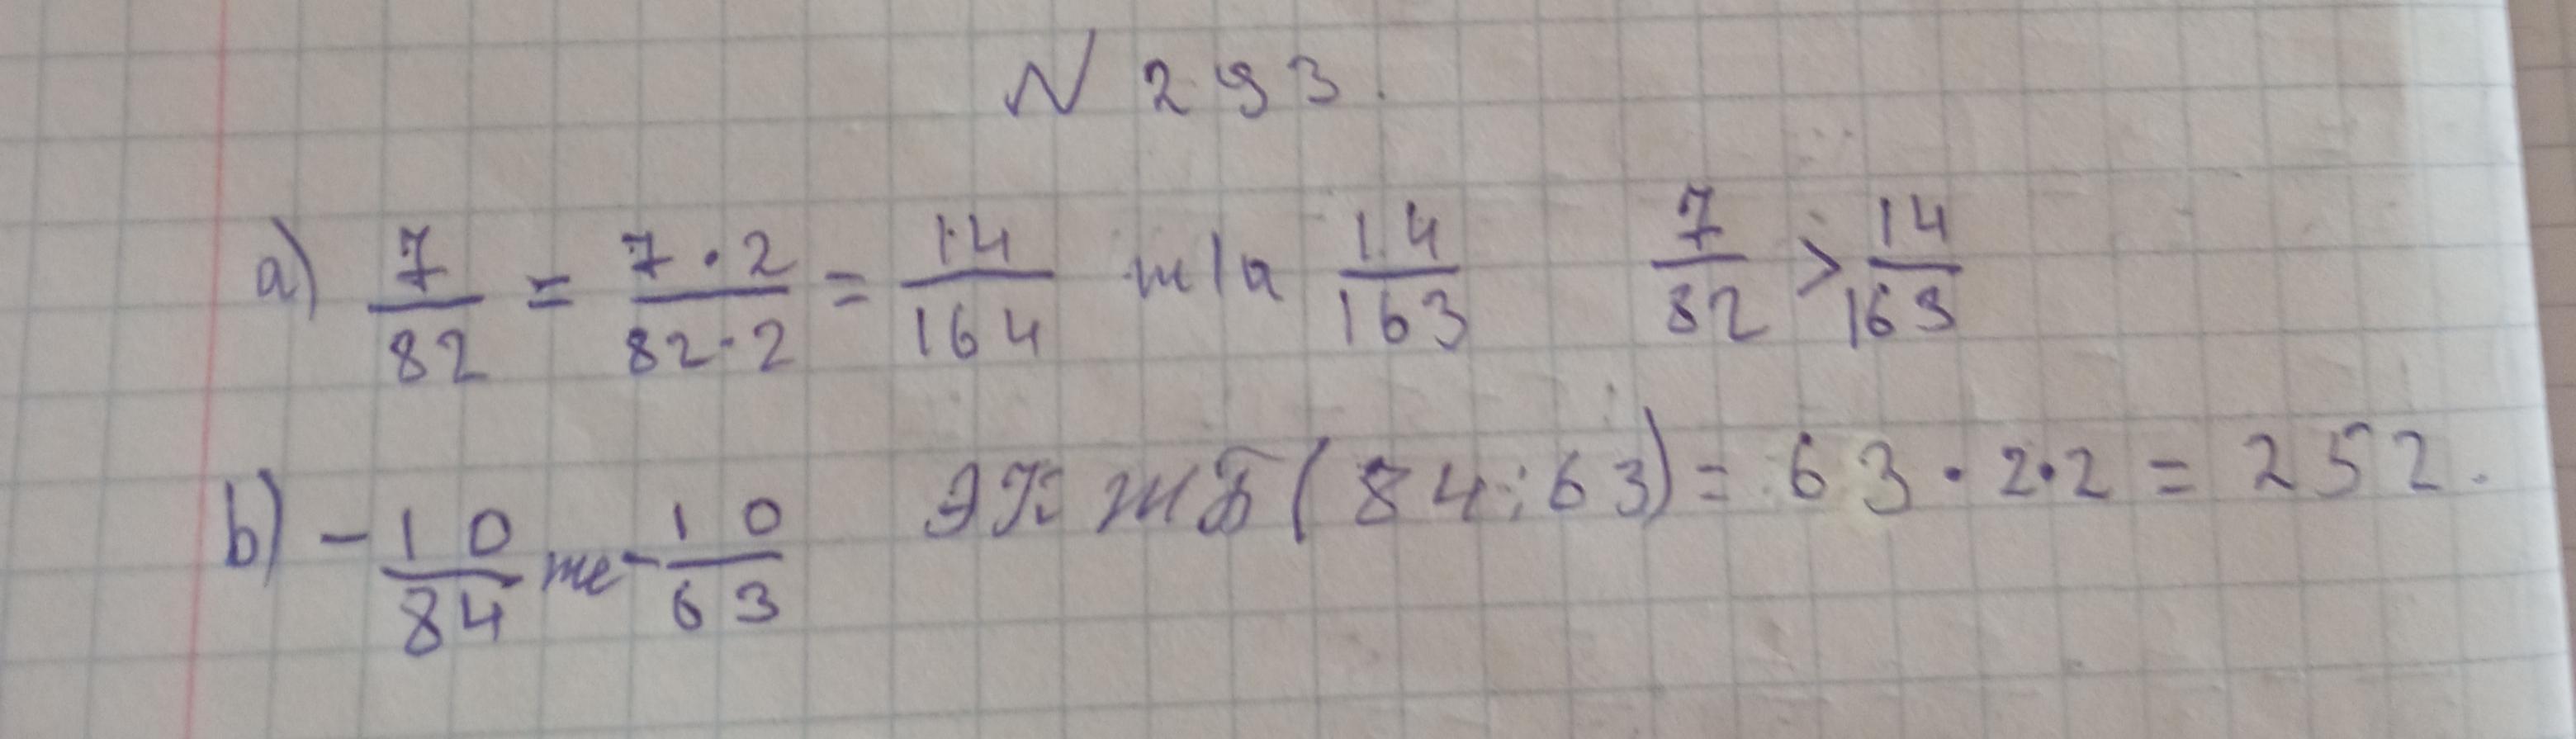 N 293.
a) 7/82 = 7·2/82·2 = 14/164 m/a 14/163 7/82 > 14/163
b) -10/84 же -10/63 ЭКЖБ(84;63) = 63·2·2 = 252.